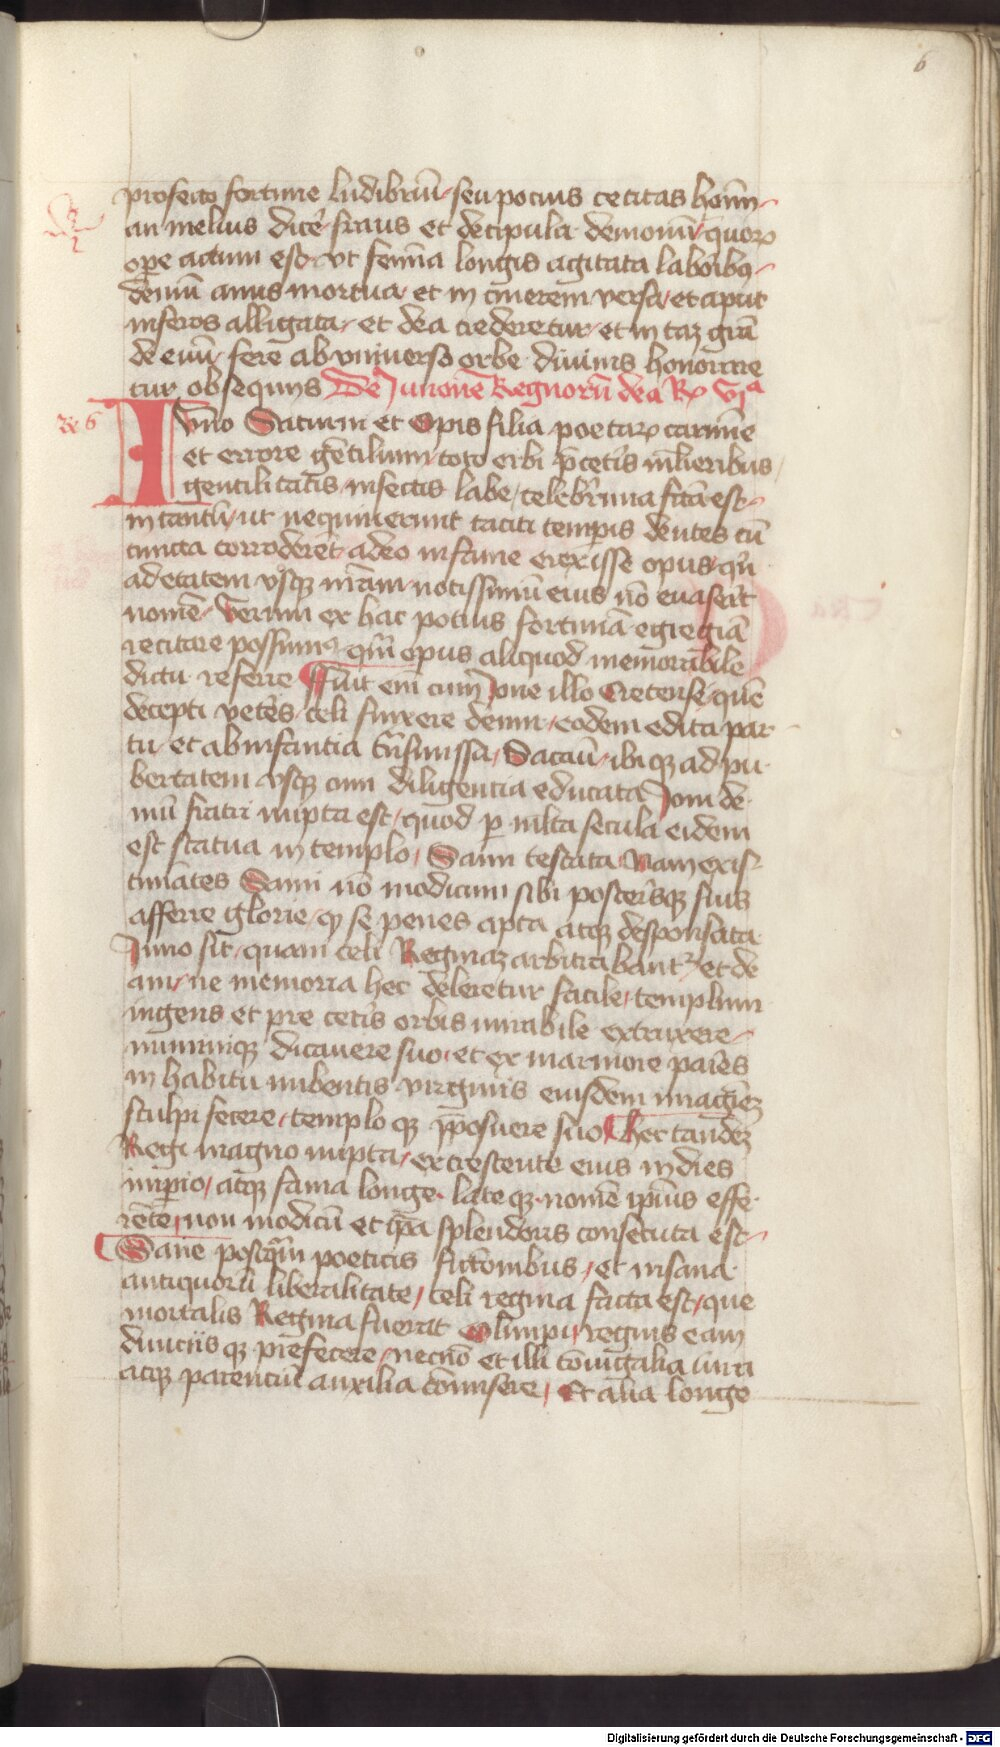 6
profecto fortune ludibriū seu pocius cecitas hoīm
an melius dicē fraus et decipula demonūm quoꝝ
ope actum est vt femīa longis agitata laboribꝫ
demū anus mortua et in cinerem versa et aput
inferos alligata et dea crederetur et in taꝫ grā
de euū fere ab vniuerso orbe diuinis honorare
tur obsequijs De Iunone Regnorū dea Rᵃ VIᵃ
Rᵃ 6
Iuno Saturni et Opis filia poetaꝝ carmīe
et errore gētilium toto orbi p̄ ceteris mulieribus
gentilitatis infectis labe celebrima fcā est
in tantū ut nequiuerunt taciti temporis dentes cū
cuncta corroderēt adeo infame exexisse opus qn̄
ad etatem vsqꝫ nr̄am notissimū eius nō euaserit
nomē Verum ex hac potius fortunā egregiā
recitare possumꝰ qm̄ opus aliquod memorabile
dictu referre Fuit em̄ cum Ioue illo Cretense quē
decepti veteres celi finxere deum eodem edita par
tu et ab infantia trāsmissa Sacaū ibiqꝫ ad pu
bertatem vsqꝫ cum diligentia educata Ioui de
mū fratri nupta est quod p multa secula eidem
est statua in templo Sami testata Nam exis
timātes Sami nō modicum sibi posterisqꝫ suis
afferre glorie ꝙ se penes apta atqꝫ desponsata
Iuno sit quam celi Reginaꝫ arbitrabantᷣ et de
am ne memoria hec deleretur facile templum
ingens et pre ceteris orbis mirabile extruxere
numinique dicauere suo et ex marmore paries
in habitu nubentis virginis eiusdem imagieꝫ
sculpi fecere templo qꝫ p̄posuere suo Hec tandeꝫ
Regi magno nupta excrescente eius in dies
imperio atqꝫ fama longe late qꝫ nomē ipsius effe
rēte non modicū et ipa splendoris consecuta est
Sane postqm̄ poeticis fictionibus et insana
antiquorū liberalitate celi regina facta est que
mortalis Regina fuerat Olimpi regnis eam
diuiciis qꝫ prefecere necnō et illi cōiugalia iura
atqꝫ parentiū auxilia cōmisere Et alia longe
Digitalisierung gefördert durch die Deutsche Forschungsgemeinschaft - DFG